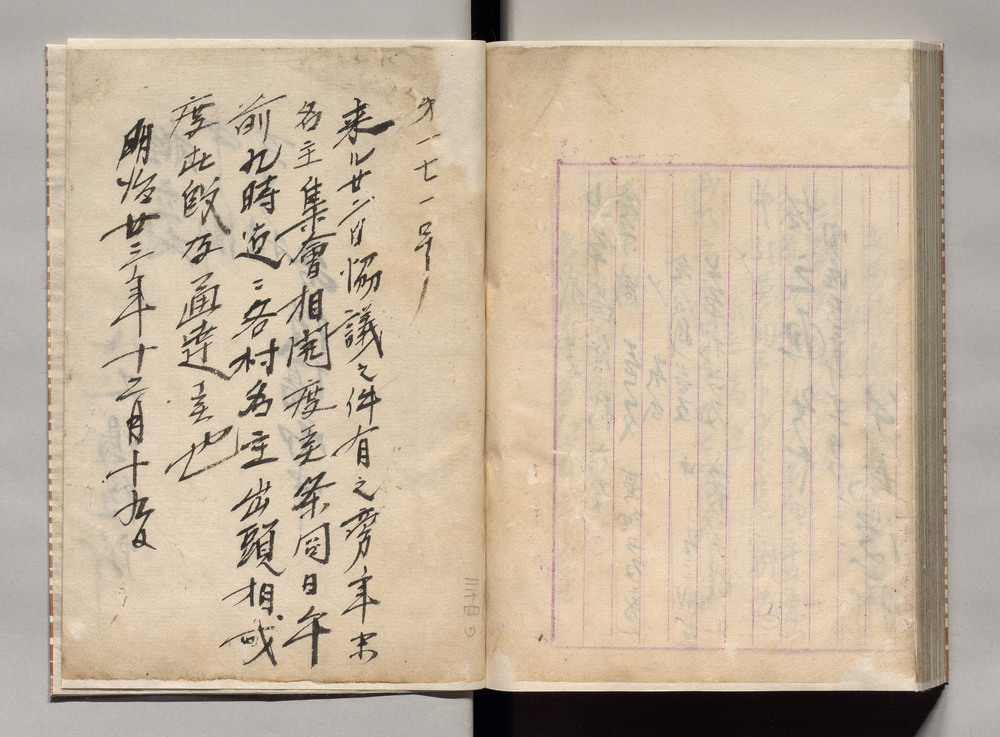 第一七一号
来ル廿二日協議之件有之旁年末
名主集會相開度至条同日午
前九時迄ニ各村名主出頭相成
度此段及通達至也
明治廿三年十二月十九日